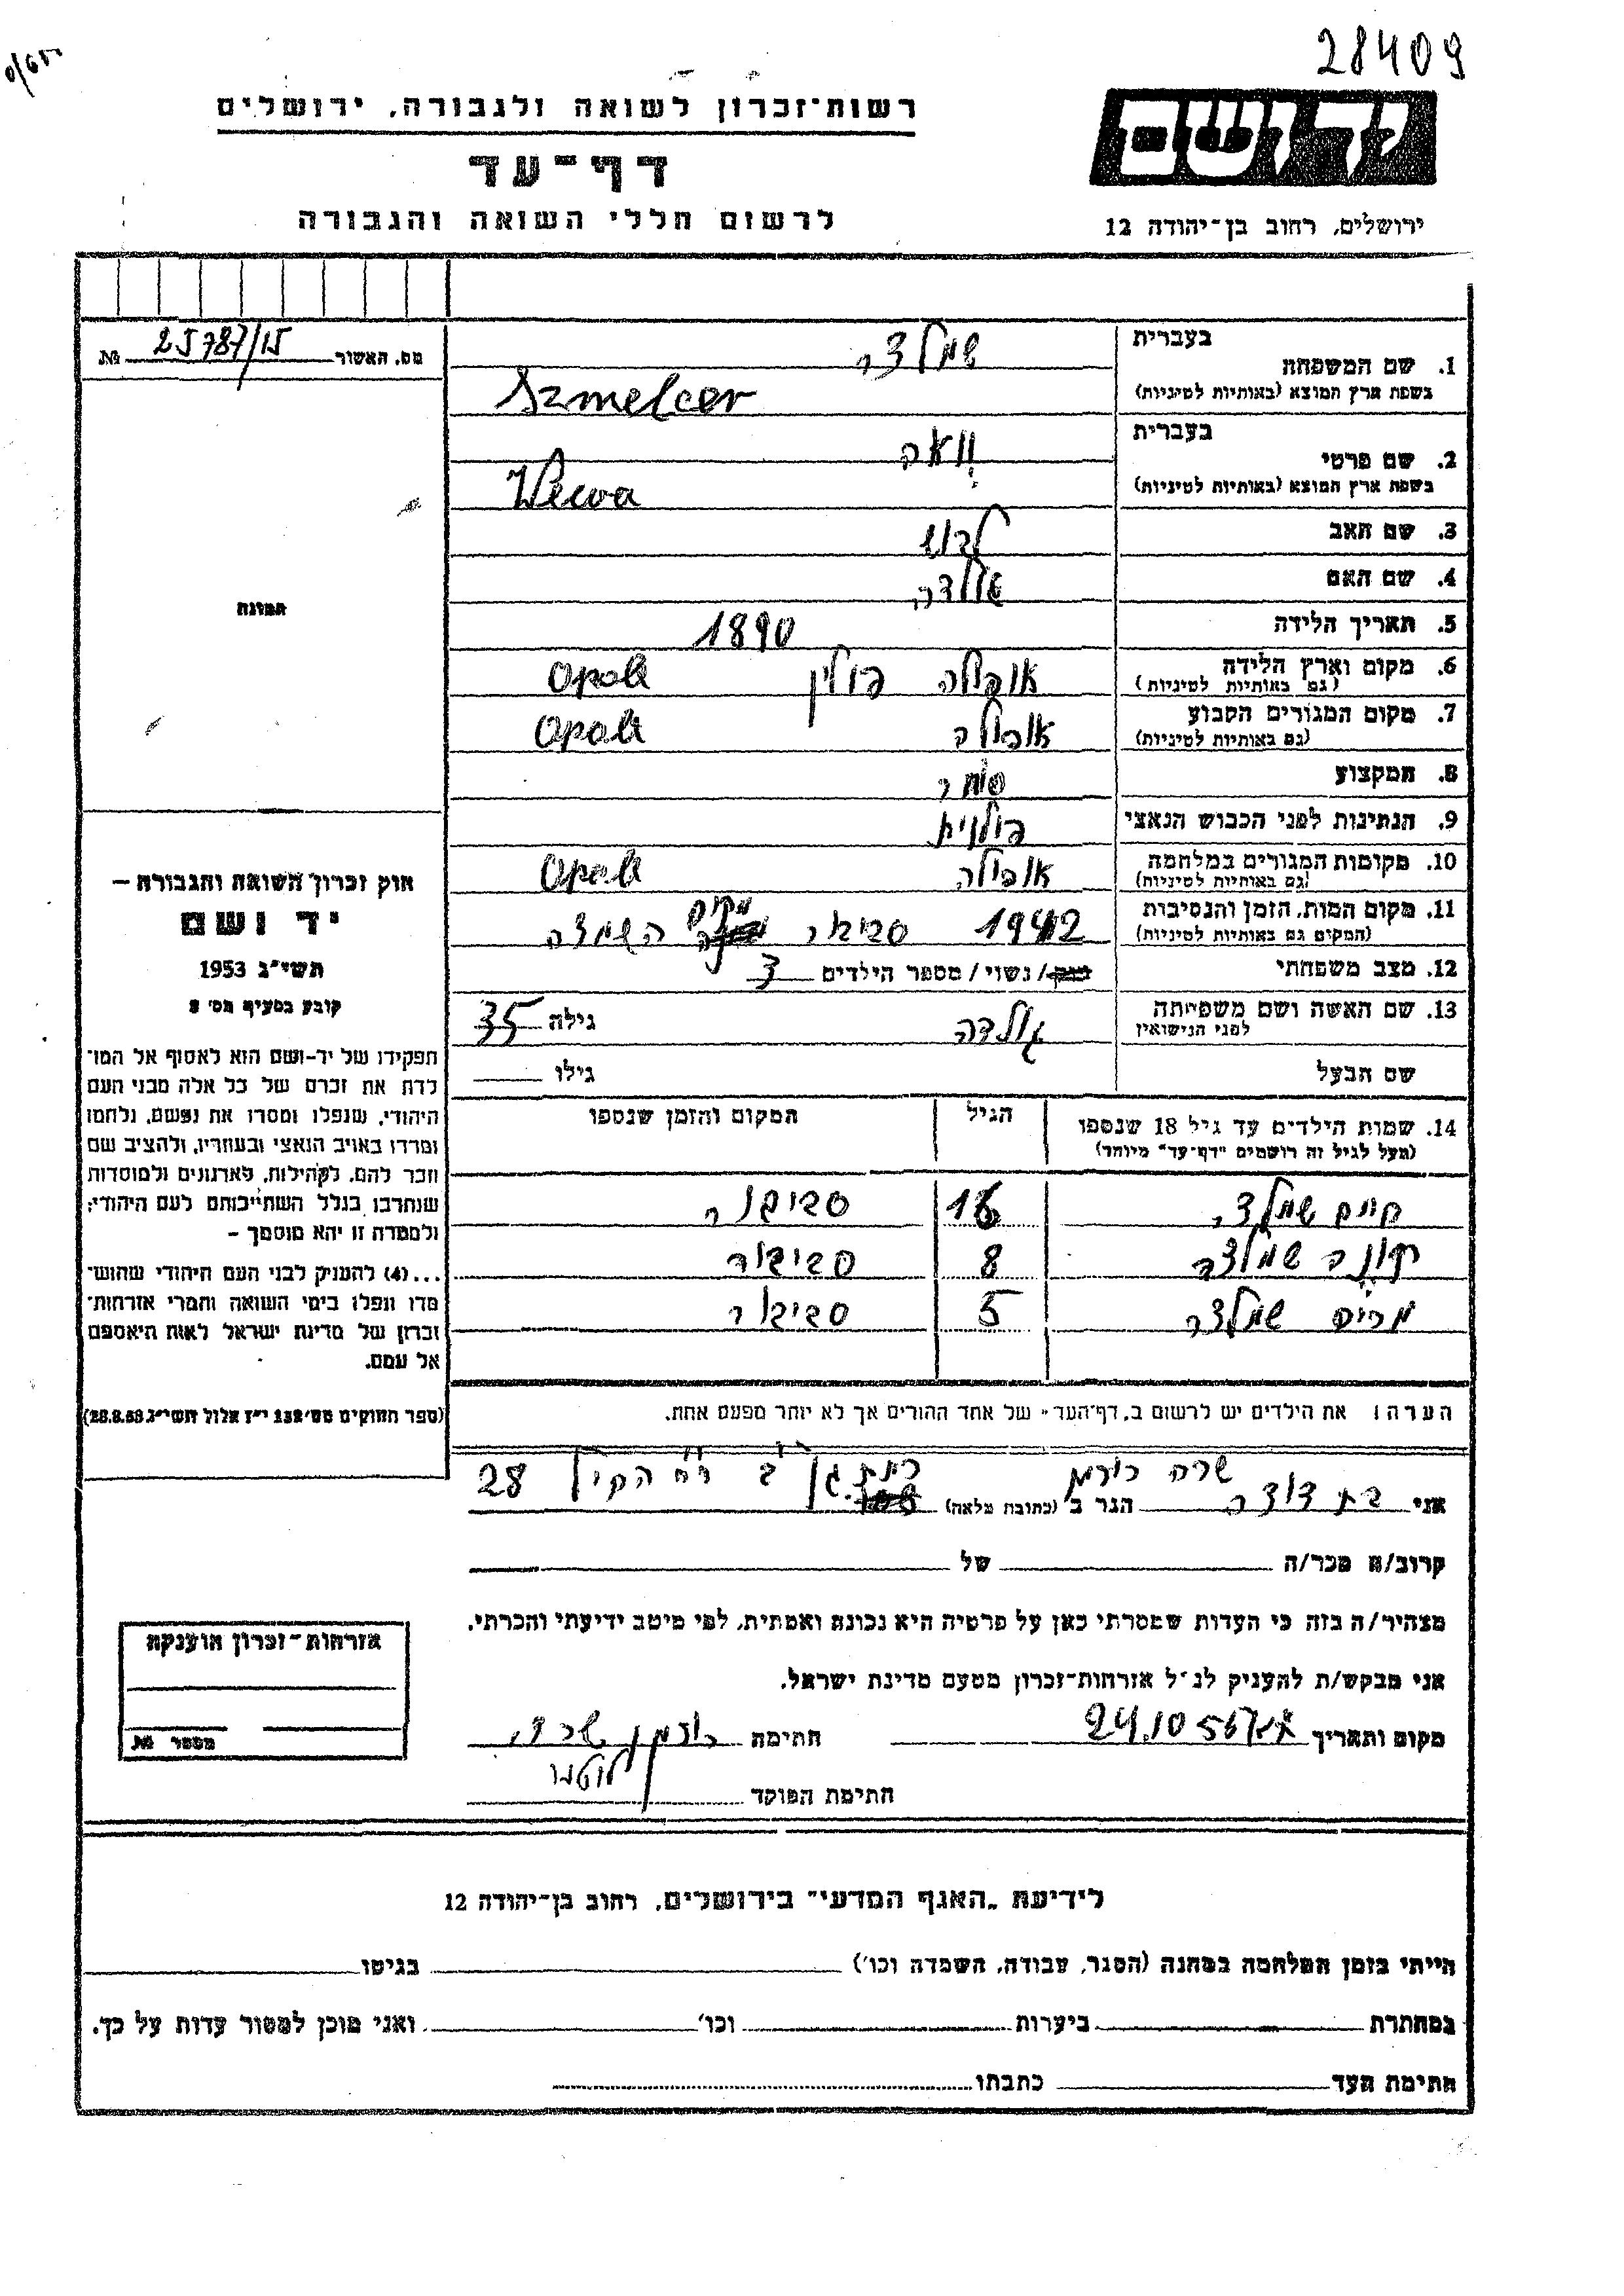 28409
רשות־זכרון לשואה ולגבורה, ירושלים
דף־עד
לרשום חללי השואה והגבורה
יד ושם
ירושלים, רחוב בן־יהודה 12
מס. האשור 25787/15 №
בעברית
1. שם המשפחה שמלצר
בשפת ארץ המוצא (באותיות לטיניות) Szmelcer
בעברית
2. שם פרטי
בשפת ארץ המוצא (באותיות לטיניות)
3. שם האב
4. שם האם גולדה
5. תאריך הלידה 1890
6. מקום וארץ הלידה אופולה פולין Opole
(גם באותיות לטיניות)
7. מקום המגורים הקבוע אופולה Opole
(גם באותיות לטיניות)
8. המקצוע סוחר
9. הנתינות לפני הכבוש הנאצי פולנית
10. מקומות המגורים במלחמה אופולה Opole
(גם באותיות לטיניות)
11. מקום המות, הזמן והנסיבות 1942 סביבור השמדה
(המקום גם באותיות לטיניות)
12. מצב משפחתי רווק/ נשוי/ מספר הילדים 3
13. שם האשה ושם משפחתה גולדה גילה 35
לפני הנישואין
שם הבעל גילו
14. שמות הילדים עד גיל 18 שנספו הגיל המקום והזמן שנספו
(מעל לגיל זה רושמים "דף־עד" מיוחד)
חיים שמלצר 16 סביבור
שמלצר 8 סביבור
מרים שמלצר 5 סביבור
הערה! את הילדים יש לרשום ב„דף־העד" של אחד ההורים אך לא יותר מפעם אחת.
תמונה
חוק זכרון השואה והגבורה –
יד ושם
תשי״ג 1953
קובע בסעיף מס' 2
תפקידו של יד־ושם הוא לאסוף אל המו־
לדת את זכרם של כל אלה מבני העם
היהודי, שנפלו ומסרו את נפשם, נלחמו
ומרדו באויב הנאצי ובעוזריו, ולהציב שם
וזכר להם, לקהילות, לארגונים ולמוסדות
שנחרבו בגלל השתייכותם לעם היהודי;
ולמטרה זו יהא מוסמך –
...(4) להעניק לבני העם היהודי שהוש־
מדו ונפלו בימי השואה והמרי אזרחות־
זכרון של מדינת ישראל לאות היאספם
אל עמם.
(ספר החוקים מס׳ 132 י״ז אלול תשי״ג 28.8.53)
אני שרה הגר ב (כתובת מלאה) רמת גן 28
קרוב/ה מכר/ה של
מצהיר/ה בזה כי העדות שמסרתי כאן על פרטיה היא נכונה ואמתית, לפי מיטב ידיעתי והכרתי.
אני מבקש/ת להעניק לנ״ל אזרחות־זכרון מטעם מדינת ישראל.
מקום ותאריך 24.10.56 חתימה
חתימת הפוקד
אזרחות־זכרון הוענקה
מספר №
לידיעת „האגף המדעי" בירושלים, רחוב בן־יהודה 12
הייתי בזמן המלחמה במחנה (הסגר, עבודה, השמדה וכו') בגיטו
במחתרת ביערות וכו' ואני מוכן למסור עדות על כך.
חתימת העד כתבתו